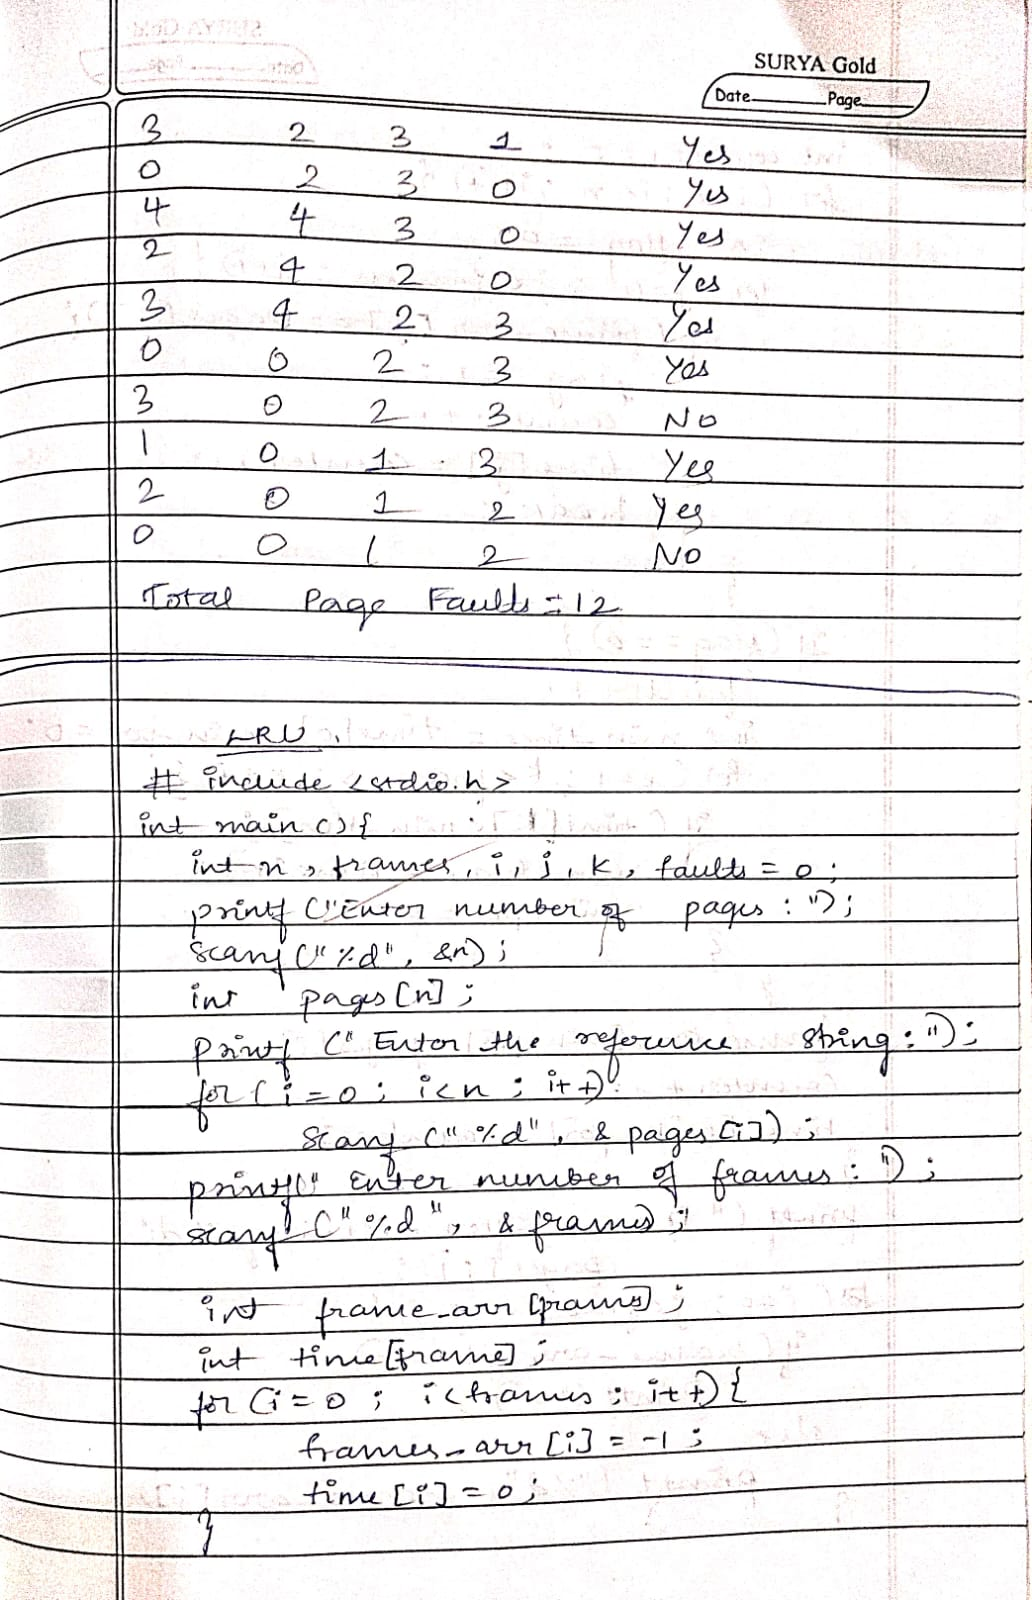 SURYA Gold
Date Page
3 2 3 1 Yes
0 2 3 0 Yes
4 4 3 0 Yes
2 4 2 0 Yes
3 4 2 3 Yes
0 0 2 3 Yes
3 0 2 3 No
1 0 1 3 Yes
2 0 1 2 Yes
0 0 1 2 No
Total Page Faults = 12
LRU
# include <stdio.h>
int main () {
int n, frames, i, j, k, faults = 0;
printf ("Enter number of pages : ");
scanf ("%d", &n);
int pages [n];
printf (" Enter the reference string : ");
for (i = 0; i<n; i++)
scanf (" %d", & pages [i]);
printf (" Enter number of frames : ");
scanf (" %d ", & frames);
int frame_arr [frames];
int time [frame];
for (i = 0; i<frames; i++) {
frames_arr [i] = -1;
time [i] = 0;
}